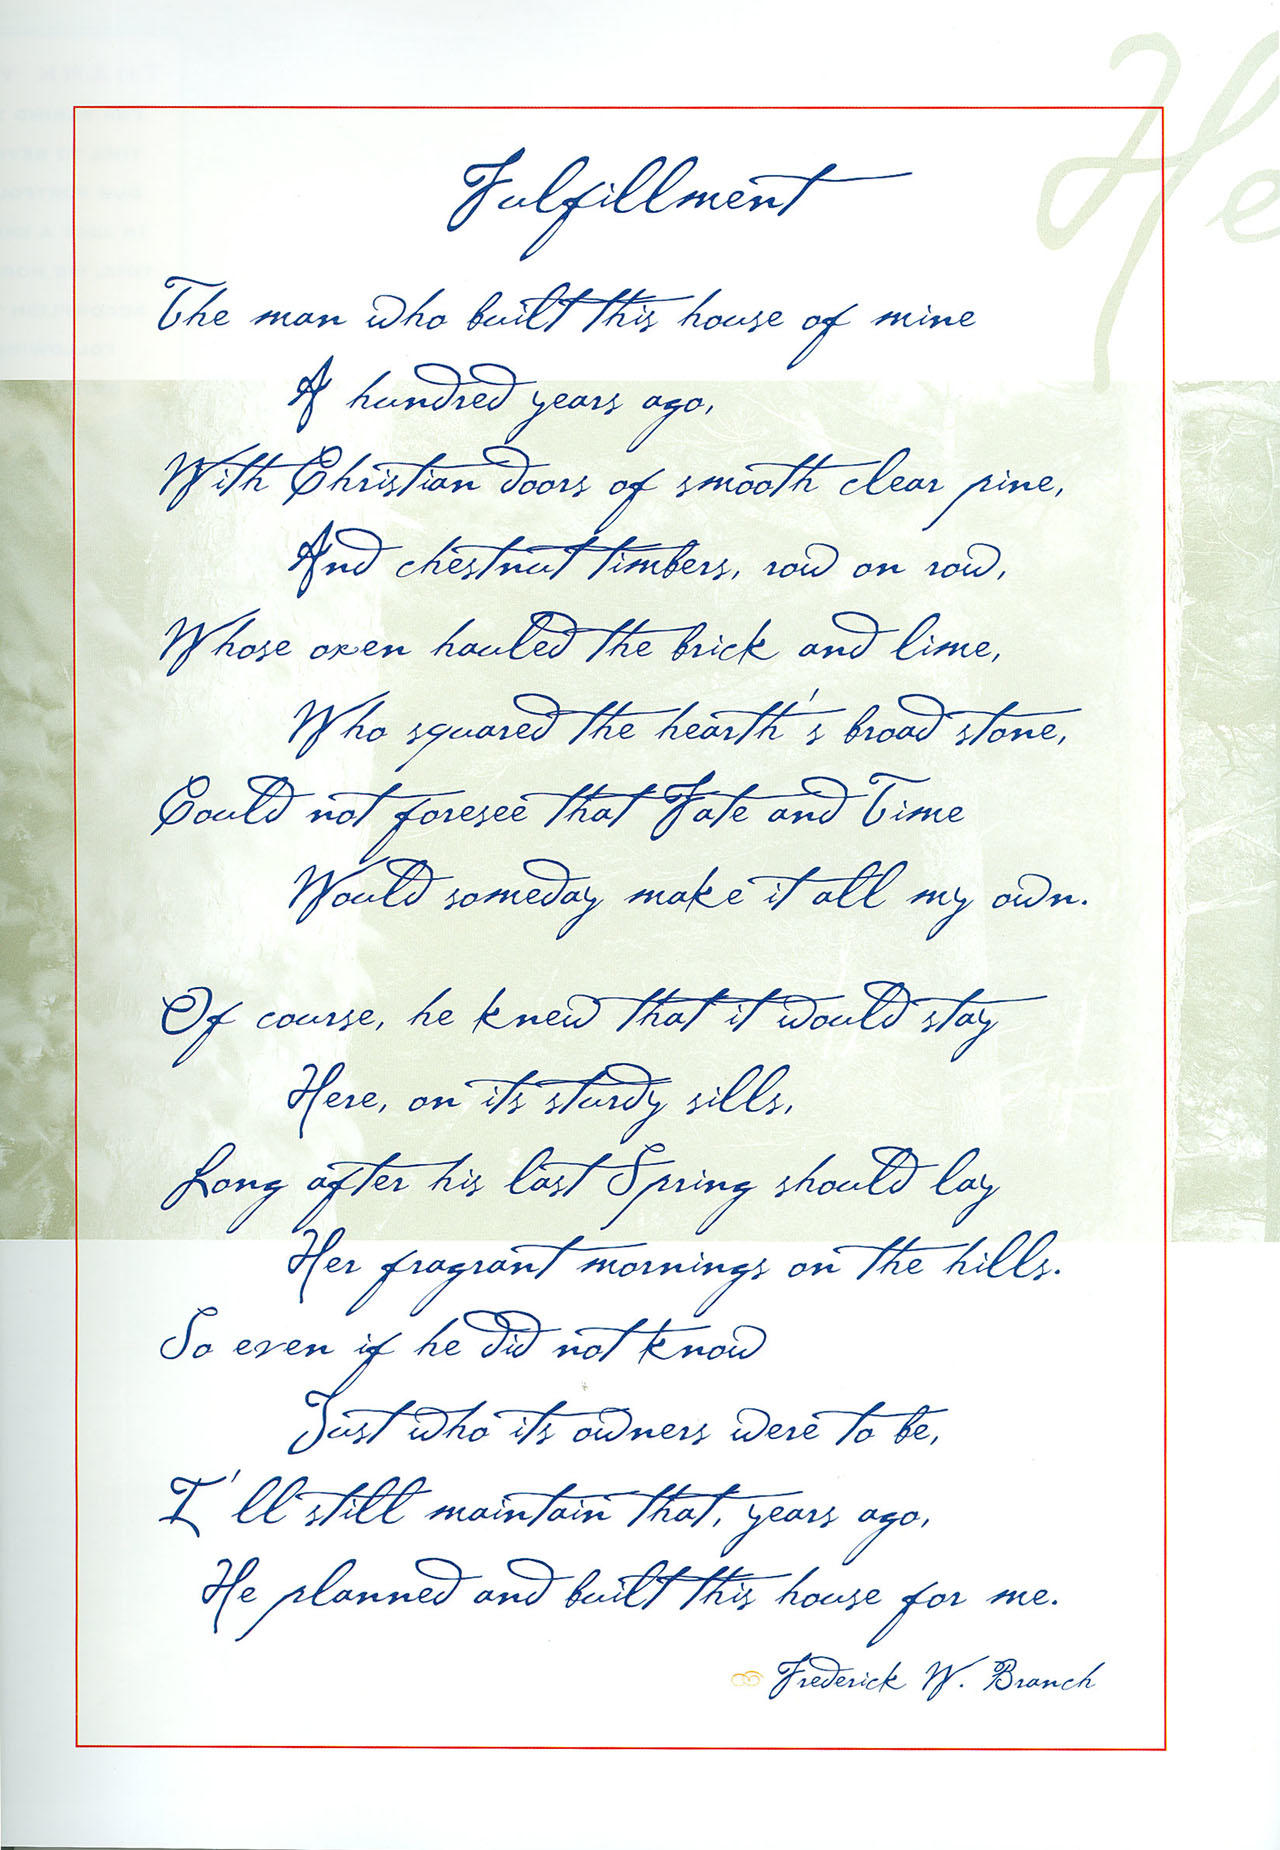 He
Fulfillment
The man who built this house of mine
A hundred years ago,
With Christian doors of smooth clear pine,
And chestnut timbers, row on row,
Whose oxen hauled the brick and lime,
Who squared the hearth's broad stone,
Could not foresee that Fate and Time
Would someday make it all my own.
Of course, he knew that it would stay
Here, on its sturdy sills,
Long after his last Spring should lay
Her fragrant mornings on the hills.
So even if he did not know
Just who its owners were to be,
I'll still maintain that, years ago,
He planned and built this house for me.
Frederick W. Branch